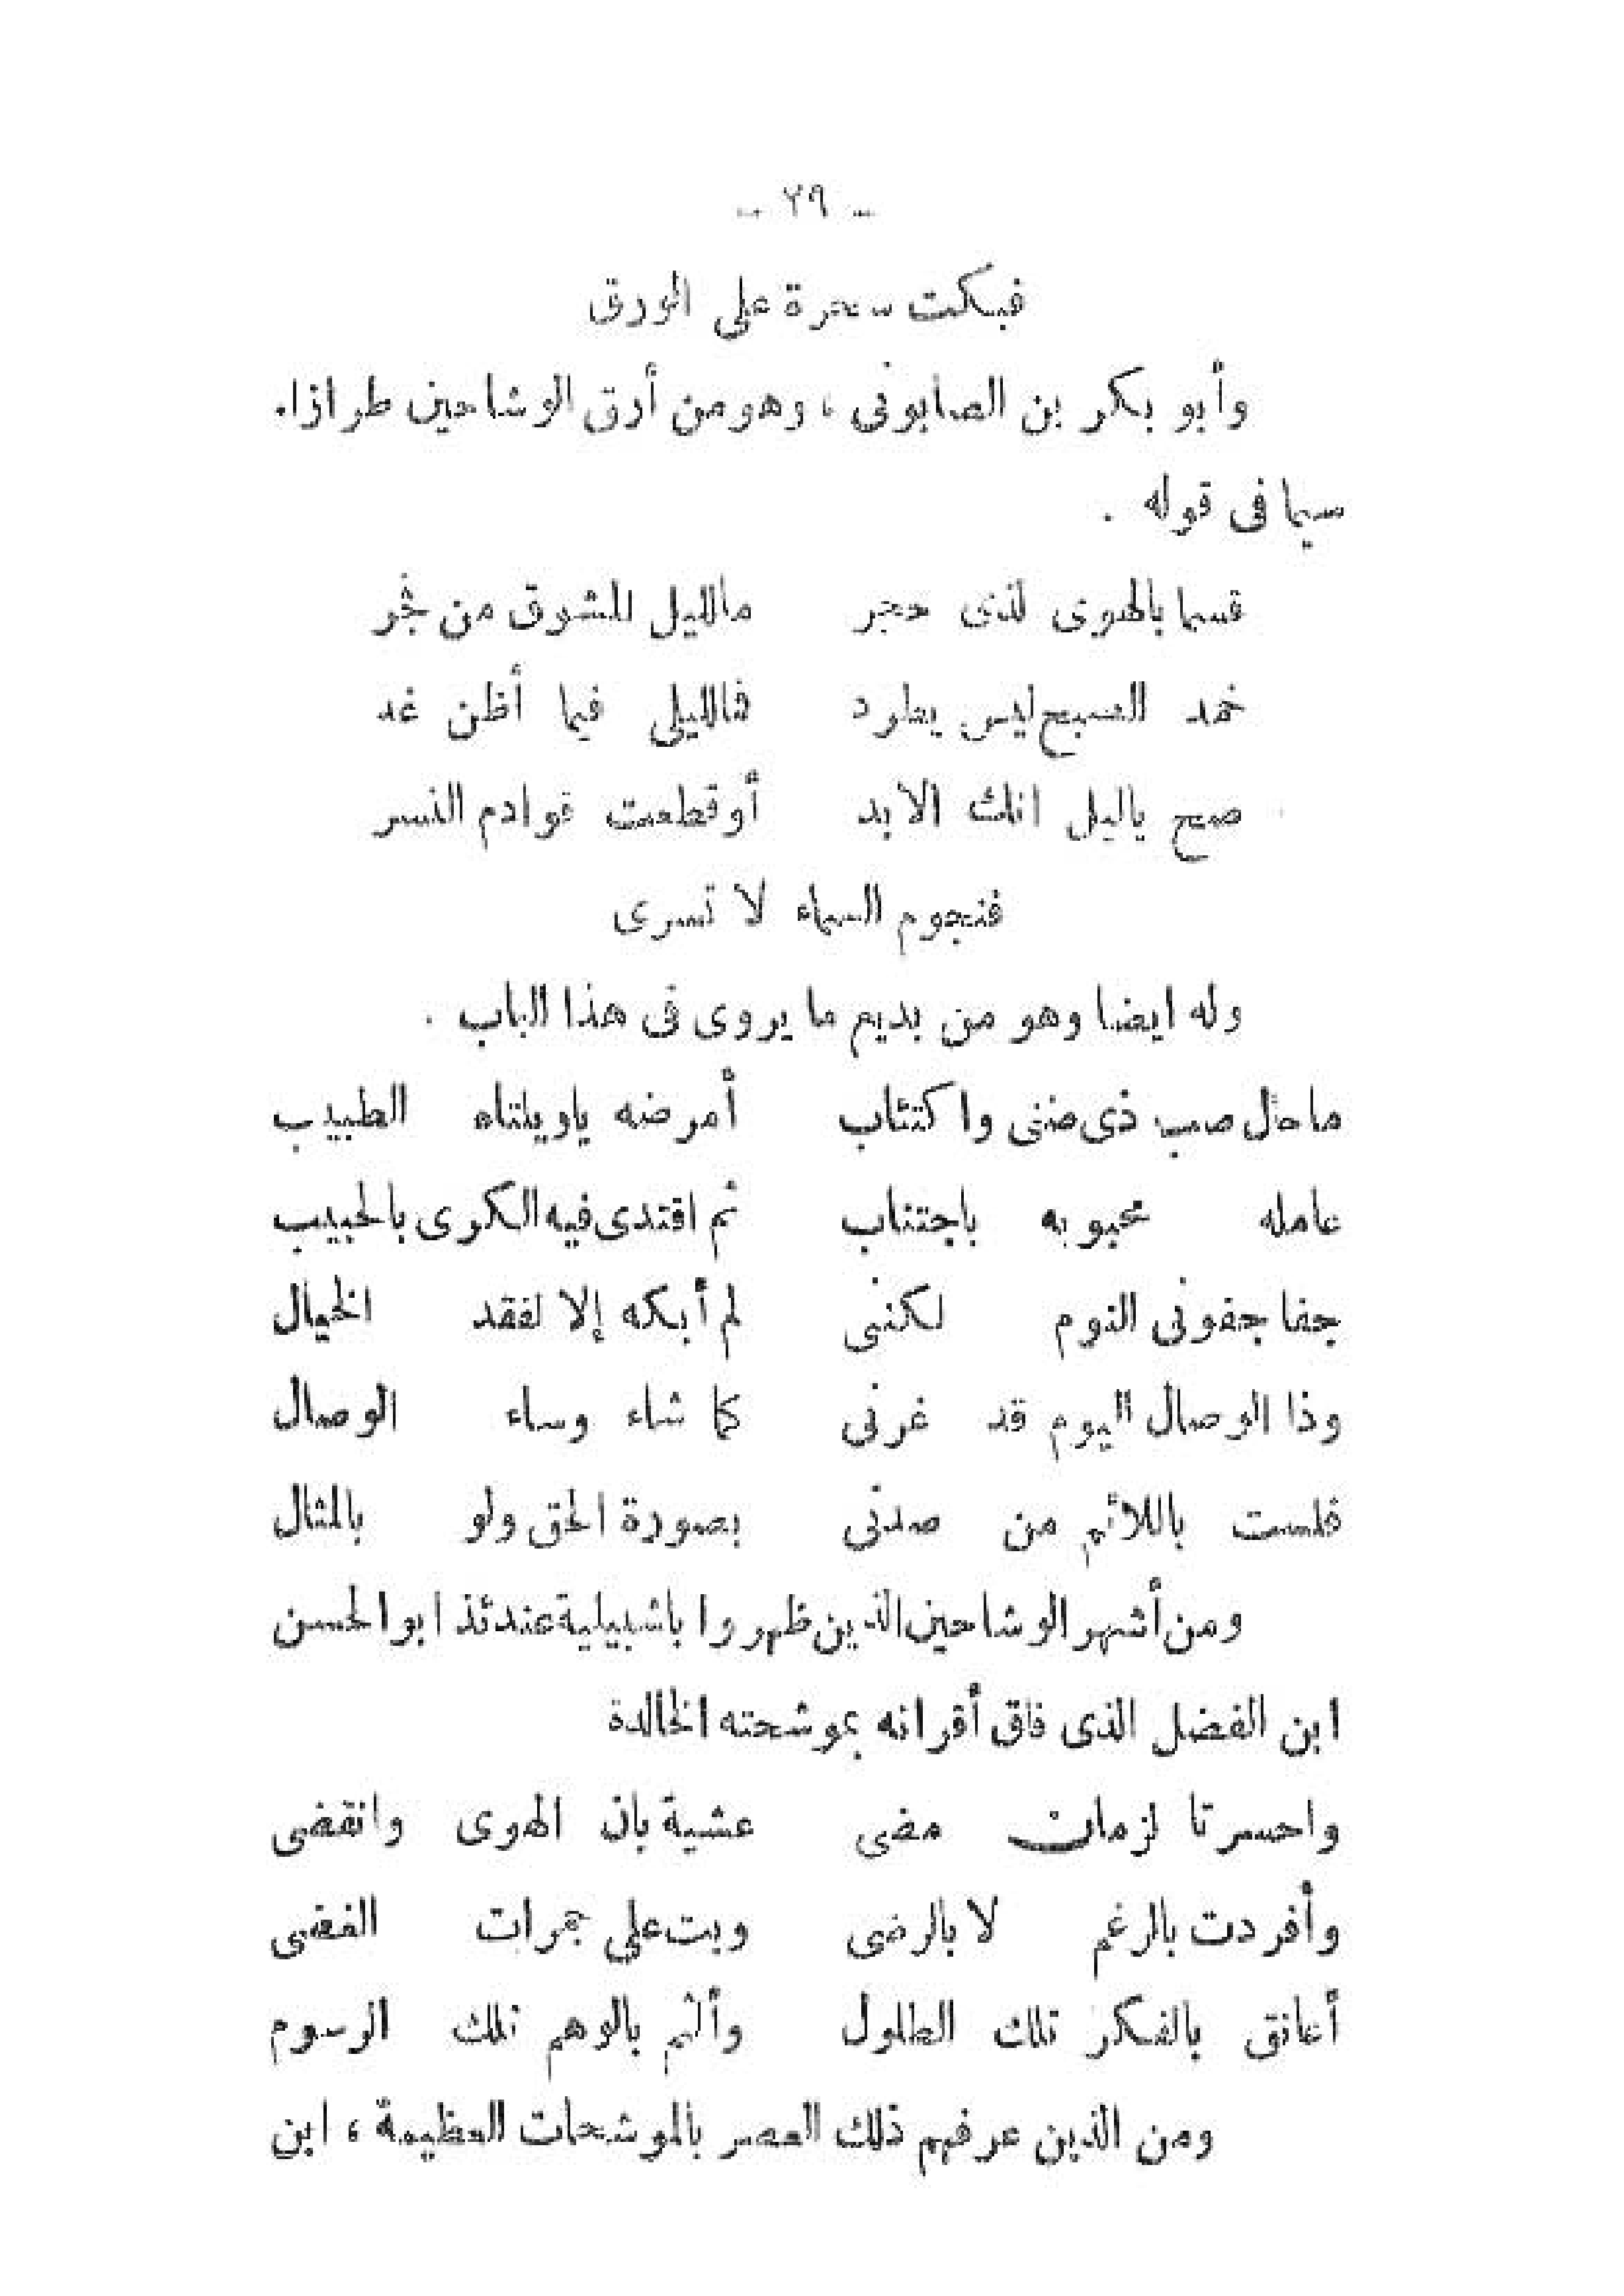 - ٢٩ -
فبكت سحرة على الورق
وأبو بكر بن الصابونى ، وهو من أرق الوشاحين طرازا.
سيما فى قوله .
قسما بالهوى لذى حجر ماالليل المشوق من فجر
خمد الصبح ليس يطرد فالليلى فيما أظن غد
صح ياليل انك الابد أو قطعت قوادم النسر
فنجوم السماء لا تسرى
وله ايضا وهو من بديع ما يروى فى هذا الباب .
ما حال صب ذى ضنى واكتئاب أمرضه ياويلتاه الطبيب
عامله محبوبه باجتناب ثم اقتدى فيه الكرى بالحبيب
جفا جفونى النوم لكننى لم أبكه إلا لفقد الخيال
وذا الوصال اليوم قد غرنى كما شاء وساء الوصال
فلست باللائم من صدنى بصورة الحق ولو بالمثال
ومن أشهر الوشاحين الذين ظهروا باشبيلية عندئذ ابو الحسن
ابن الفضل الذى فاق أقرانه بموشحته الخالدة
واحسرتا لزمان مضى عشية بان الهوى وانقضى
وأفردت بالرغم لا بالرضى وبت على جمرات الفضى
أعانق بالفكر تلك الطلول وألثم بالوهم تلك الرسوم
ومن الذين عرفهم ذلك العصر بالموشحات العظيمة ، ابن